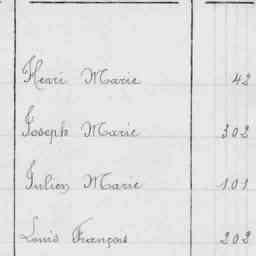 Henri Marie 42
Joseph Marie 302
Julien Marie 101
Louis François 202